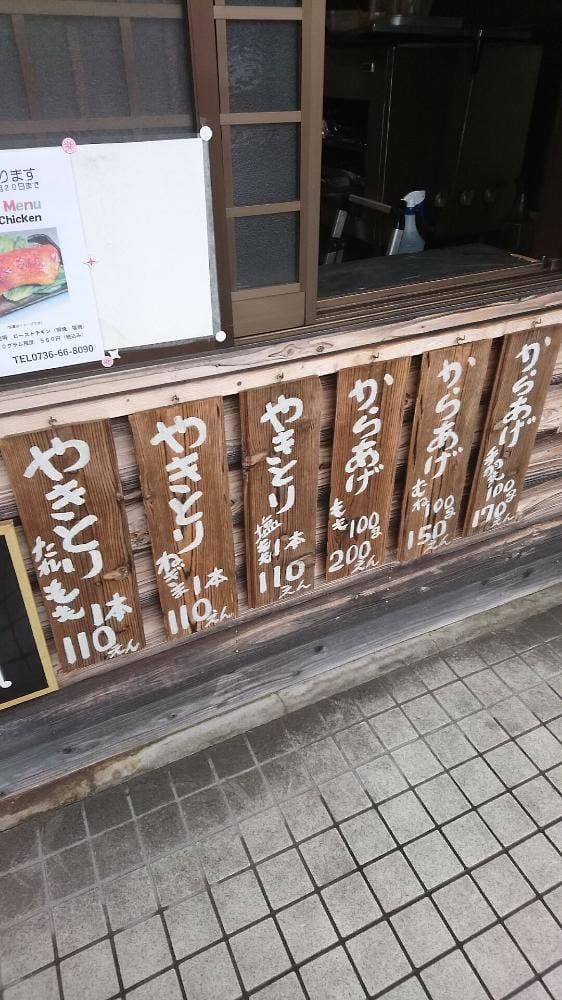 ります
月20日まで
Menu
Chicken
ローストチキン
580円(税込み)
TEL0736-66-8090
やきとり
たれもも
1本
110えん
やきとり
ねぎま
1本
110えん
やきとり
塩もも
1本
110えん
からあげ
もも
100g
200えん
からあげ
むね
100g
150えん
からあげ
100g
170えん